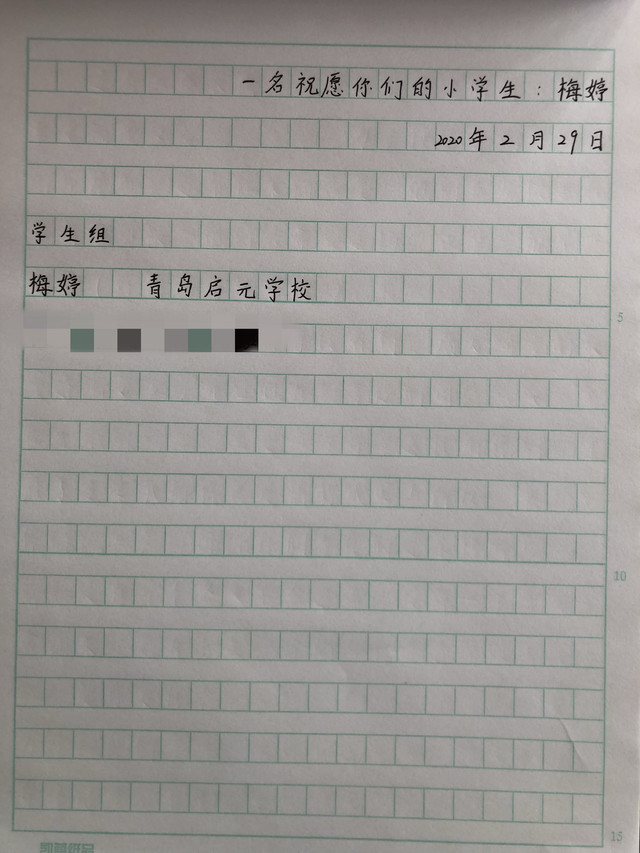 一名祝愿你们的小学生：梅婷
2020年2月29日
学生组
梅婷 青岛启元学校
5
10
15